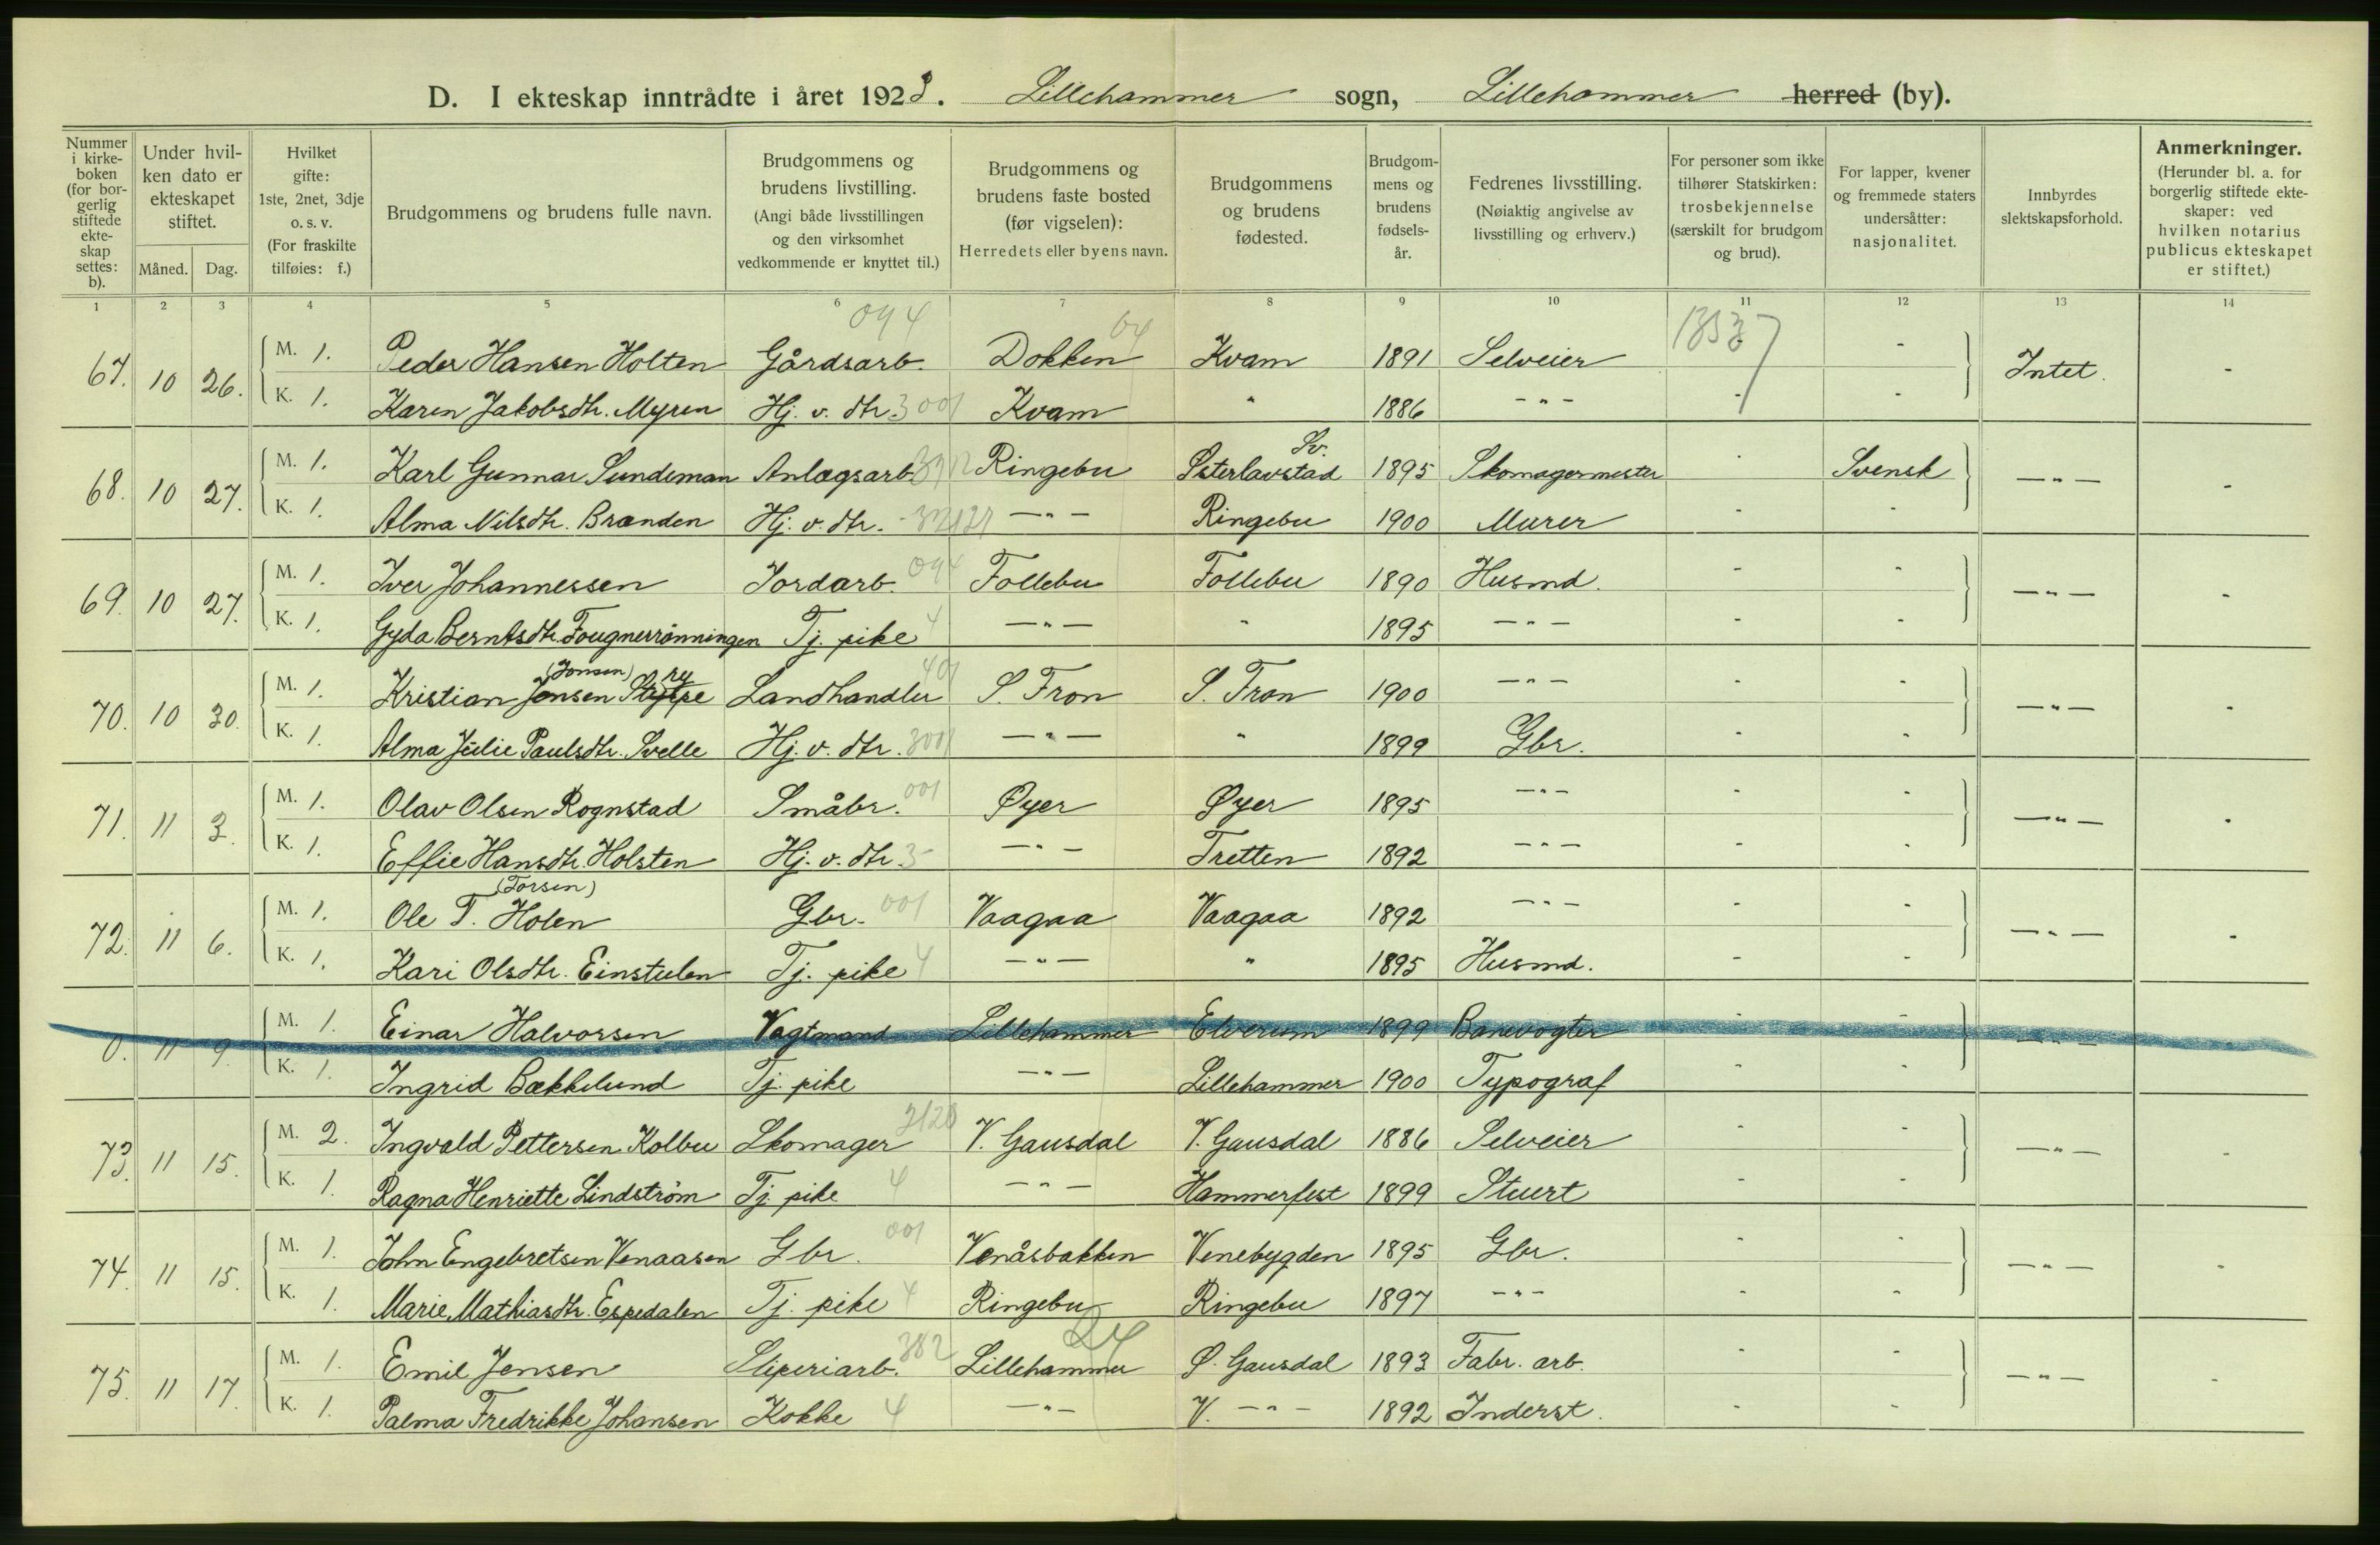 D. I ekteskap inntrådte i året 1923. Lillehammer sogn, Lillehammer herred (by).
Nummer i kirke-boken (for bor-gerlig stiftede ekte-skap settes: b).
Under hvil-ken dato er ekteskapet stiftet.
Måned. Dag.
Hvilket gifte: 1ste, 2net, 3dje o. s. v. (For fraskilte tilføies: f.)
Brudgommens og brudens fulle navn.
Brudgommens og brudens livstilling. (Angi både livsstillingen og den virksomhet vedkommende er knyttet til.)
Brudgommens og brudens faste bosted (før vigselen): Herredets eller byens navn.
Brudgommens og brudens fødested.
Brudgom-mens og brudens fødsels-år.
Fedrenes livsstilling. (Nøiaktig angivelse av livsstilling og erhverv.)
For personer som ikke tilhører Statskirken: trosbekjennelse (særskilt for brudgom og brud).
For lapper, kvener og fremmede staters undersåtter: nasjonalitet.
Innbyrdes slektskapsforhold.
Anmerkninger. (Herunder bl. a. for borgerlig stiftede ekte-skaper: ved hvilken notarius publicus ekteskapet er stiftet.)
1 2 3 4 5 6 7 8 9 10 11 12 13 14
094 64
67. 10 26. M. 1. Peder Hansen Holten Gårdsarb. Dokken Kvam 1891 Selveier - Intet. -
K. 1. Karen Jakobsdtr. Myren Hj. v. dtr. 3001 Kvam " 1886 - " - - -
68. 10 27. M. 1. Karl Gunnar Sundeman Anlægsarb. Ringebu Sv. 1895 Skomagermester - Svensk - " - -
K. 1. Alma Nilsdtr. Brænden Hj. v. dtr. - " - Ringebu 1900 Murer - -
69. 10 27. M. 1. Iver Johannessen Jordarb. 094 Follebu Follebu 1890 Husmd. - - - " - -
K. 1. Gyda Berntsdtr. Fougnerrønningen Tj. pike 4 - " - " 1895 - " - - -
70. 10 30. M. 1. Kristian Jensen (Jonsen) Landhandler 401 S. Fron S. Fron 1900 - " - - - - " - -
K. 1. Alma Julie Paulsdtr. Svelle Hj. v. dtr. 3001 - " - " 1899 Gbr. - -
71. 11 3. M. 1. Olav Olsen Rognstad Småbr. 001 Øyer Øyer 1895 - " - - - - " - -
K. 1. Effie Hansdtr. Holsten Hj. v. dtr. 3 - " - Tretten 1892 - " - - -
72. 11 6. M. 1. Ole T. (Torsen) Holen Gbr. 001 Vaagaa Vaagaa 1892 - " - - - - " - -
K. 1. Kari Olsdtr. Einstulen Tj. pike 4 - " - " 1895 Husmd. - -
0. 11 9. M. 1. Einar Halvorsen Vagtmand Lillehammer Elverum 1899 Banevogter - - - " -
K. 1. Ingrid Bækkelund Tj. pike - " - Lillehammer 1900 Typograf - -
73. 11 15. M. 2. Ingvald Pettersen Kolbu Skomager V. Gausdal V. Gausdal 1886 Selveier - - - " - -
K. 1. Ragna Henriette Lindström Tj. pike 4 - " - Hammerfest 1899 Stuert - -
74. 11 15. M. 1. John Engebretsen Venaasen Gbr. 001 Venåsbakken Venebygden 1895 Gbr. - - - " - -
K. 1. Marie Mathiasdtr. Espedalen Tj. pike 4 Ringebu Ringebu 1897 - " - - -
75. 11 17. M. 1. Emil Jensen Sliperiarb. 382 Lillehammer Ø. Gausdal 1893 Fabr. arb. - " - -
K. 1. Palma Fredrikke Johansen Kokke 4 - " - V. - " - 1892 Inderst. - -